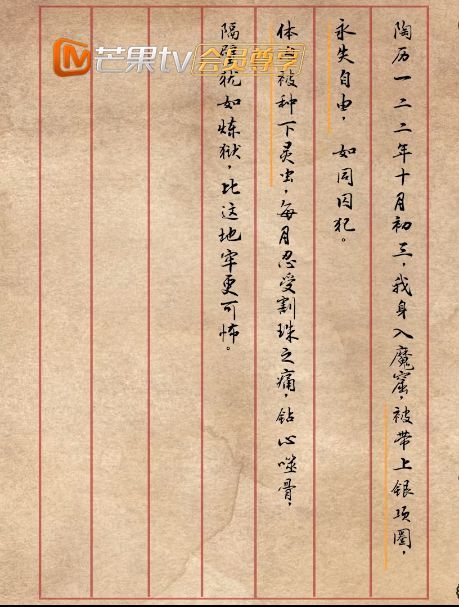 芒果tv会员尊享
陶历一二二年十月初三，我身入魔窟，被带上银项圈，
永失自由，如同囚犯。
体内被种下灵虫，每月忍受割珠之痛，钻心噬骨，
隔壁犹如炼狱，比这地牢更可怖。